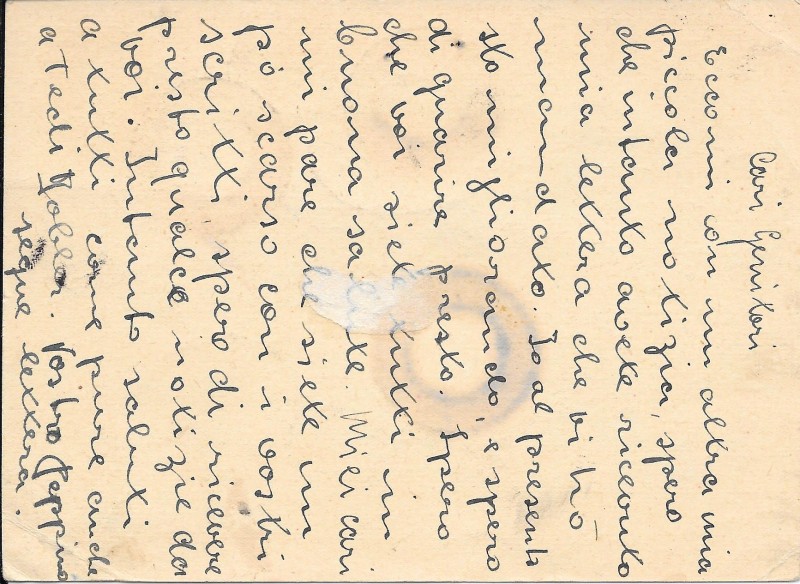 Cari Genitori
Eccomi con un altra mia
piccola notizia, spero
che intanto avete riceouto
mia lettera che vi hò
mandato. Io al presente
sto migliorando, e spero
di guarire presto. Spero
che voi siete tutti in
buona salute. Miei cari
mi pare che siete un
pò scarso con i vostri
scritti spero di ricevere
presto qualce notizie da
voi. Intanto saluti
a tutti come pure anche
a Tedi Vostro Peppino
segue lettera.